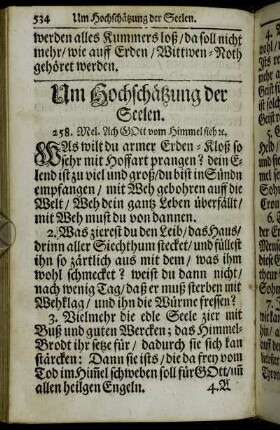 534 Um Hochschätzung der Seelen.
werden alles Kummers loß / da soll nicht
mehr / wie auff Erden / Wittwen-Noth
gehöret werden.
Um Hochschätzung der
Seelen.
258. Mel. Ach GOtt vom Himmel sieh ꝛc.
WAs wilt du armer Erden-Kloß so
sehr mit Hoffart prangen? dein E-
lend ist zu viel und groß / du bist in Sündn
empfangen / mit Weh gebohren auff die
Welt / Weh dein gantz Leben überfällt /
mit Weh must du von dannen.
2. Was zierest du den Leib / das Haus /
drinn aller Siechthum stecket / und füllest
ihn so zärtlich aus mit dem / was ihm
wohl schmecket? weist du dann nicht /
nach wenig Tag / daß er muß sterben mit
Wehklag / und ihn die Würme fressen?
3. Vielmehr die edle Seele zier mit
Buß und guten Wercken; das Himmel-
Brodt ihr setze für / dadurch sie sich kan
stärcken: Dann sie ists / die da frey vom
Tod im Him̃el schweben soll für GOtt / uñ
allen heilgen Engeln. 4. A